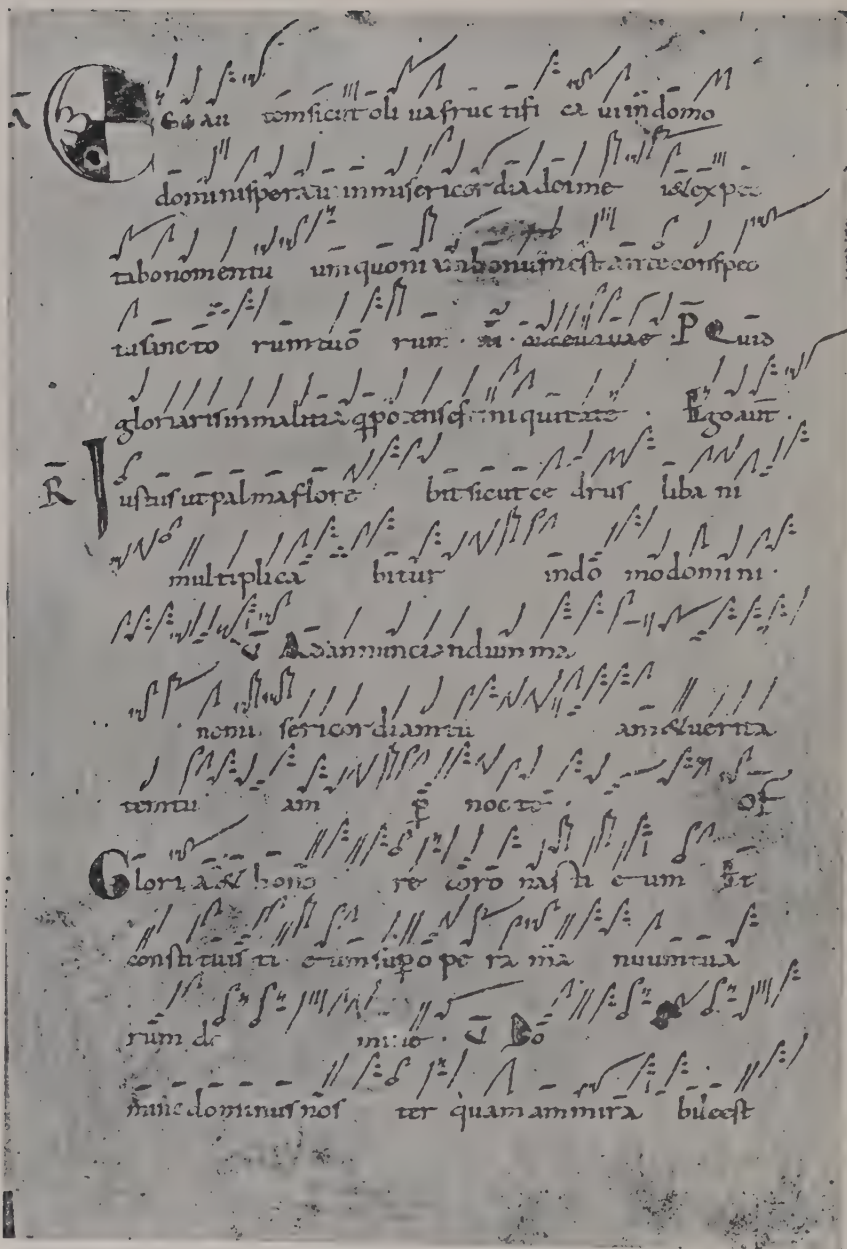 A Ego au temsicut oli uafruc tifi ca ui in domo
dominisperaui inmisericordiadeime i&expec
tabonomentu umquoni bonumest anteconspec
tusancto rumtuo rum · euouae · P Quid
gloriarisinmalitia qpotensesiniquitate · Ego aut ·
R Iustusutpalmaflore bitsicutce drus liba ni
multiplica bitur indo modomini ·
V Adannunciandumma
nemi sericordiamtu am&uerita
temtu am p nocte · OF
Gloria & hono re coro nasti eum Et
constituis ti eumsup ope ra ma nuumtua
rum do mine · V Do
mine dominusnos ter quamammira bileest